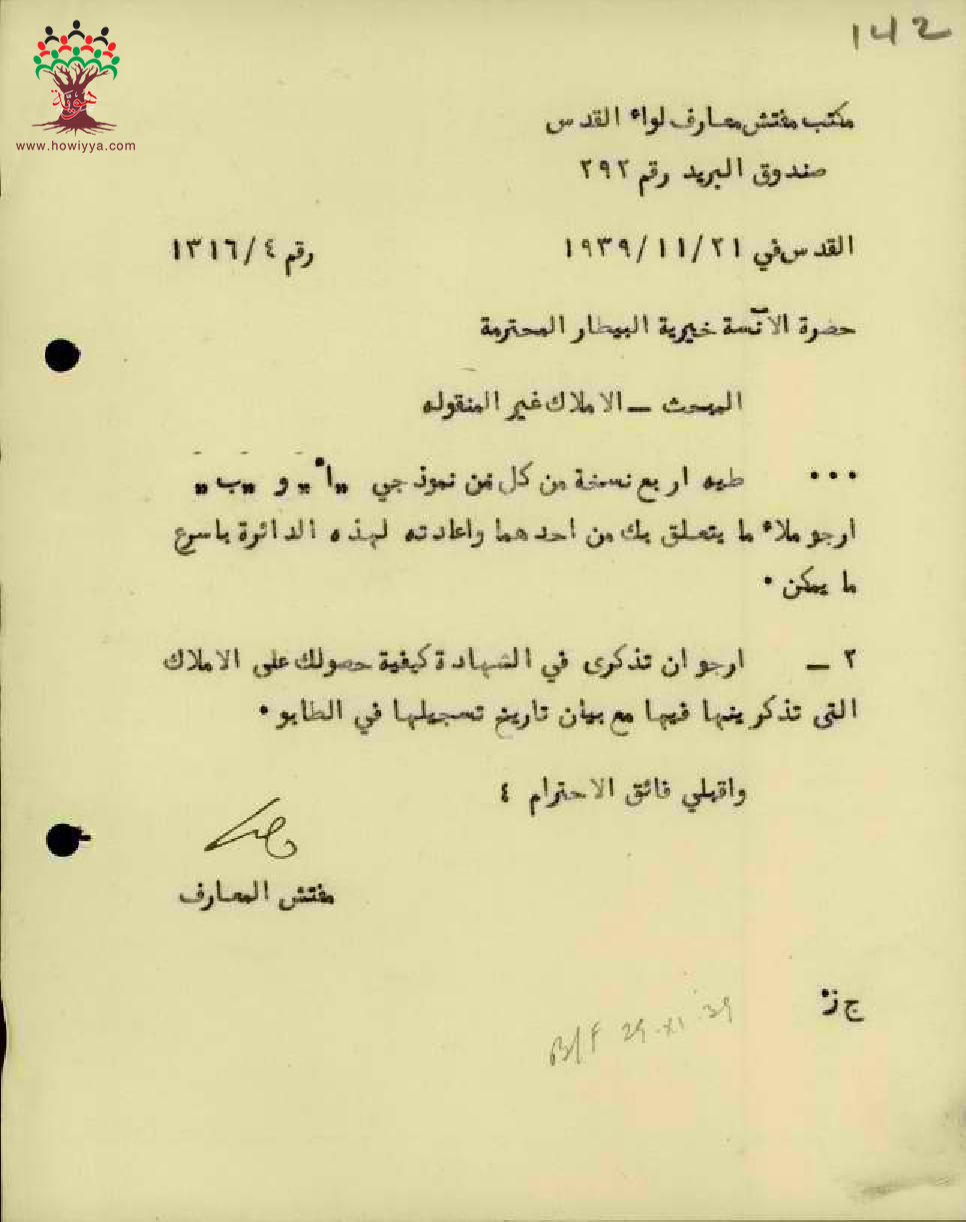 142
هوية
www.howiyya.com
مكتب مفتش معارف لواء القدس
صندوق البريد رقم ٢٩٢
القدس في ٢١/١١/١٩٣٩ رقم ١٣١٦/٤
حضرة الآنسة خيرية البيطار المحترمة
المبحث ـ الاملاك غير المنقوله
••• طيه اربع نسخة من كل من نموذجي „أ„ و „ب„
ارجو ملاء ما يتعلق بك من احدهما واعادته لهذه الدائرة باسرع
ما يمكن ٠
٢ ـ ارجو ان تذكرى في الشهادة كيفية حصولك على الاملاك
التى تذكرينها فيها مع بيان تاريخ تسجيلها في الطابو ٠
واقبلي فائق الاحترام ٤
مفتش المعارف
ج ز٠
B/F 29.XI.39